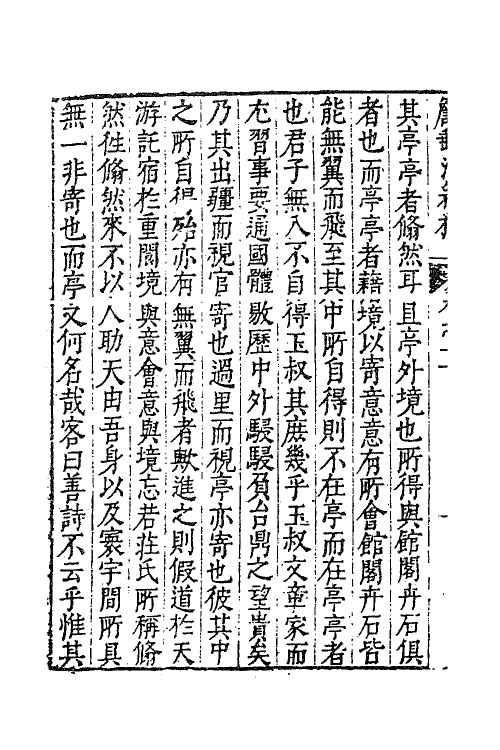 其亭亭者翛然耳且亭外境也所得與館閣卉石俱
者也而亭亭者藉境以寄意意有所會館閣卉石皆
能無翼而飛至其中所自得則不在亭而在亭亭者
也君子無入不自得玉叔其庶幾乎玉叔文章家而
尤習事要通國體敭歷中外駸駸負台鼎之望貴矣
乃其出疆而視官寄也過里而視亭亦寄也彼其中
之所自得殆亦有無翼而飛者歟進之則假道於天
游託宿於重閬境與意會意與境忘若莊氏所稱翛
然徃翛然來不以人助天由吾身以及寰宇間所具
無一非寄也而亭又何名哉客曰善詩不云乎惟其